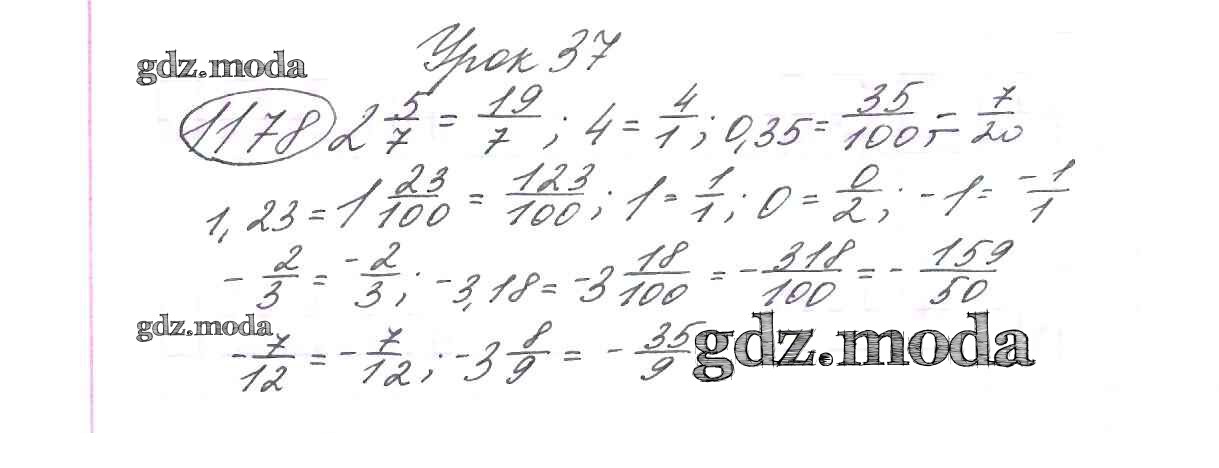 Урок 37
gdz.moda
1178 2 5/7 = 19/7 ; 4 = 4/1 ; 0,35 = 35/100 = 7/20
1,23 = 1 23/100 = 123/100 ; 1 = 1/1 ; 0 = 0/2 ; -1 = -1/1
- 2/3 = -2/3 ; -3,18 = -3 18/100 = - 318/100 = - 159/50
gdz.moda
- 7/12 = - 7/12 ; -3 8/9 = - 35/9
gdz.moda